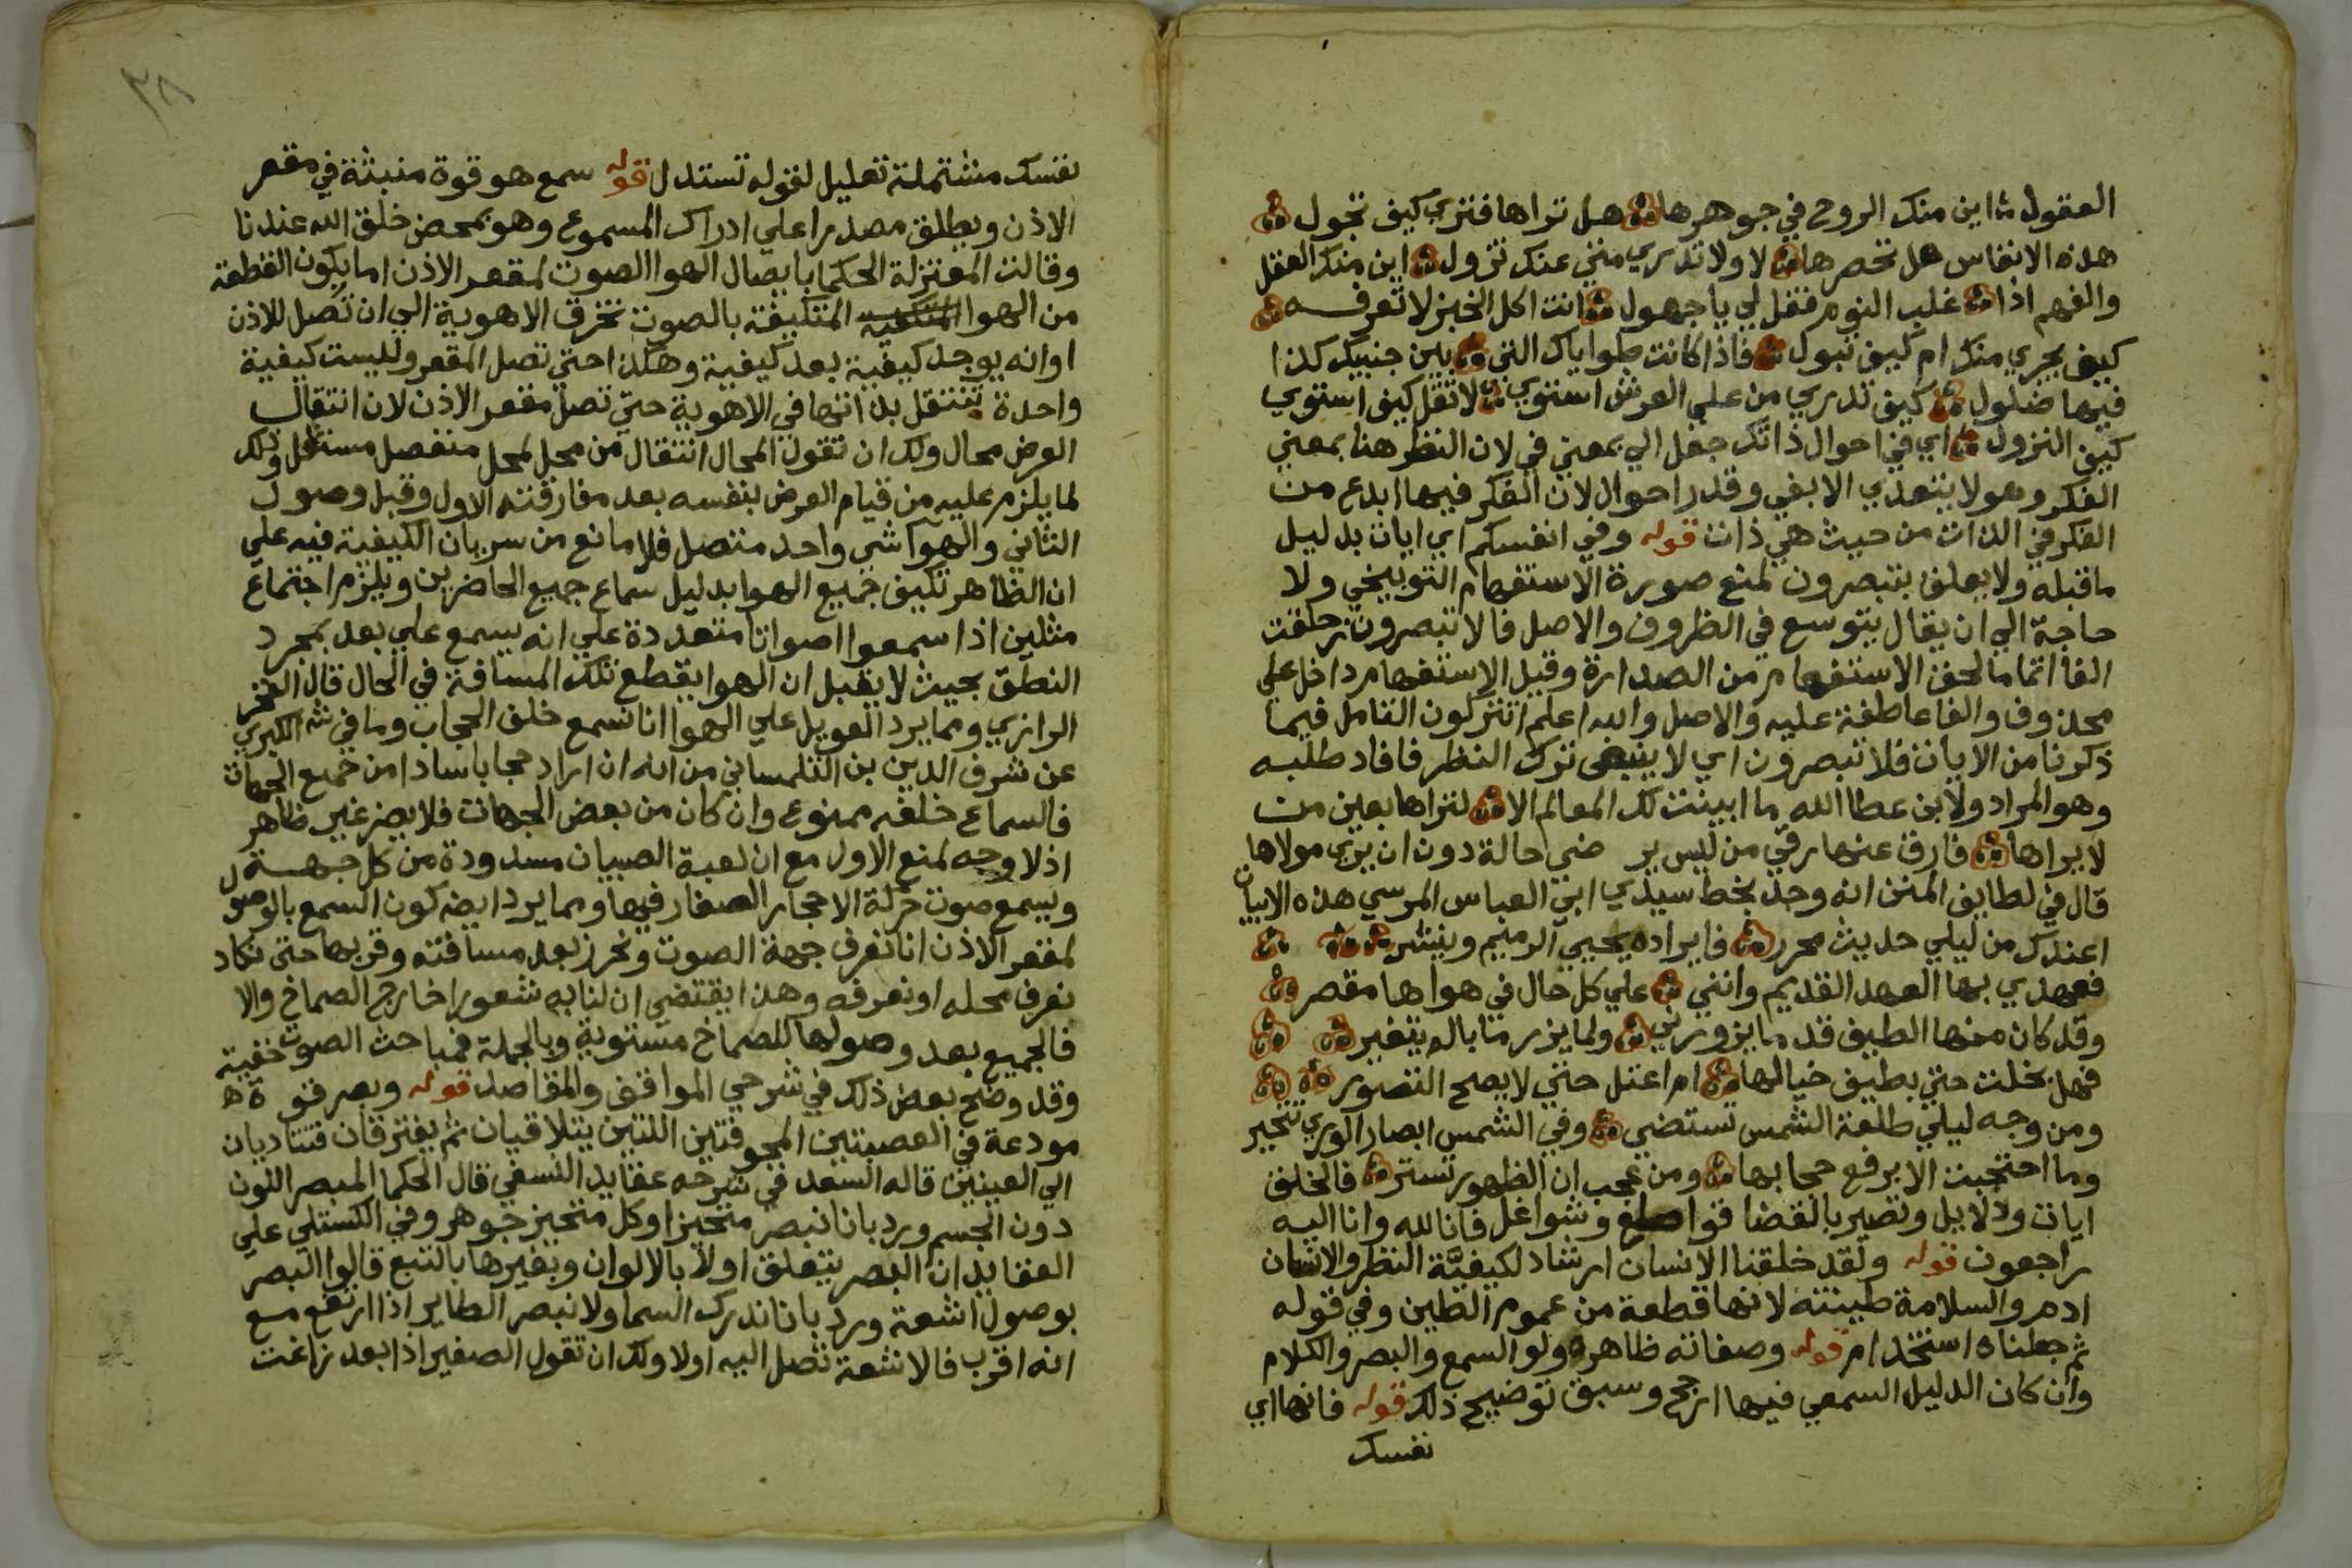 العقول ؞ اين منك الروح في جوهرها ؞ هل تراها فتري كيف تجول ؞
هذه الانفاس هل تحصرها ؞ لا ولا تدري متي عنك تزول ؞ اين منك العقل
والفهم اذا ؞ غلب النوم فقل لي يا جهول ؞ انت اكل الخبز لا تعرفه ؞
كيف يجري منك ام كيف تبول ؞ فاذا كانت طواياك التي ؞ بين جنبيك كذا
فيها ضلول ؞ كيف تدري من علي العرش استوي ؞ لا تقل كيف استوي
كيف النزول ؞ اي في احوال ذاتك جعل الي بمعني في لان النظر هنا بمعني
الفكر وهو لا يتعدي الا بفي وقدر احوال لان الفكر فيها ابدع من
الفكر في الذات من حيث هي ذات قوله وفي انفسكم اي ايات بدليل
ما قبله ولا يعلق بتبصرون لمنع صورة الاستفهام التوبيخي ولا
حاجة الي ان يقال يتوسع في الظروف والاصل فالا تبصرون زحلقت
الفا اتماما لحق الاستفهام من الصدارة وقيل الاستفهام داخل علي
محذوف والفا عاطفة عليه والاصل والله اعلم اتتركون التامل فيما
ذكرنا من الايات فلا تبصرون اي لا ينبغي ترك النظر فافاد طلبه
وهو المراد ولابن عطا الله ما ابينت لك المعالم الا ؞ لتراها بعين من
لا يراها ؞ فارق عنها رقي من ليس ير ضي حالة دون ان يري مولاها
قال في لطايف المنن انه وجد بخط سيدي ابي العباس المرسي هذه الابيات
اعندك من ليلي حديث محرر ؞ فايراده يحيي الرميم وينشر ؞ ؞ ؞
فعهدي بها العهد القديم وانني ؞ علي كل حال في هواها مقصر ؞
وقد كان منها الطيف قد ما يزورني ؞ ولما يزر ما باله يتغير ؞ ؞
فهل بخلت حتي بطيف خيالها ؞ ام اعتل حتي لا يصح التصور ؞ ؞
ومن وجه ليلي طلعة الشمس تستضي ؞ وفي الشمس ابصار الوري تتحير
وما احتجبت الا برفع حجابها ؞ ومن عجب ان الظهور تستر ؞ فالخلق
ايات ودلايل وتصير بالقضا قواطع وشواغل فانا لله وانا اليه
راجعون قوله ولقد خلقنا الانسان ارشاد لكيفيَّة النظر والانسان
ادم والسلامة طينته لانها قطعة من عموم الطين وفي قوله
ثم جعلناه استخدام قوله وصفاته ظاهره ولو السمع والبصر والكلام
وان كان الدليل السمعي فيها ارجح وسبق توضيح ذلك قوله فانها اي
نفسك
٣٨
نفسك مشتملة تعليل لقوله تستدل قوله سمع هو قوة منبثة في مقعر
الاذن ويطلق مصدرا علي ادراك المسموع وهو بمحض خلق الله عندنا
وقالت المعتزلة الحكما بايصال الهوا الصوت لمقعر الاذن اما بكون القطعة
من الهوا المتكيفة بالصوت تخرق الاهوية الي ان تصل للاذن
او انه يوجد كيفية بعد كيفية وهكذا حتي تصل المقعر وليست كيفية
واحدة تنتقل بذاتها في الاهوية حتي تصل مقعر الاذن لان انتقال
العرض محال ولك ان تقول المحال انتقال من محل لمحل منفصل مستقل وذلك
لما يلزم عليه من قيام العرض بنفسه بعد مفارقته الاول وقبل وصول
الثاني والهوا شي واحد متصل فلا مانع من سريان الكيفية فيه علي
ان الظاهر تكيف جميع الهوا بدليل سماع جميع الحاضرين ويلزم اجتماع
مثلين اذا سمعوا اصواتا متعددة علي انه يسمع علي بعد بمجرد
النطق بحيث لا يقبل ان الهوا يقطع تلك المسافة في الحال قال الفخر
الرازي ومما يرد التعويل علي الهوا انا نسمع خلف الحجاب وما في شـ الكبري
عن شرف الدين بن التلمساني من انه ان اراد حجابا سادا من جميع الجهات
فالسماع خلفه ممنوع وان كان من بعض الجهات فلا يضر غير ظاهر
اذ لا وجه لمنع الاول مع ان لعبة الصبيان مسدودة من كل جهة
ويسمع صوت حركة الاحجار الصغار فيها ومما يرد ايضه كون السمع بالوصول
لمقعر الاذن انا نعرف جهة الصوت ونحرز بعد مسافته وقربها حتي نكاد
نعرف محله او نعرفه وهذا يقتضي ان لنا به شعورا خارج الصماخ والا
فالجميع بعد وصولها للصماخ مستوية وبالجملة فمباحث الصوت خفية
وقد وضح بعض ذلك في شرحي المواقف والمقاصد قوله وبصر قوة
مودعة في العصبتين المجوفتين اللتين يتلاقيان ثم يفترقان فتتاديان
الي العينين قاله السعد في شرحه عقايد النسفي قال الحكما المبصر اللون
دون الجسم ورد بانا نبصر متحيزا وكل متحيز جوهر وفي الكستلي علي
العقايد ان البصر يتعلق اولا بالالوان وبغيرها بالتبع قالوا البصر
بوصول اشعة ورد بانا ندرك السما ولا نبصر الطاير اذا ارتفع مع
انه اقرب فالاشعة تصل اليه اولا ولك ان تقول الصغير اذا بعد زاغت